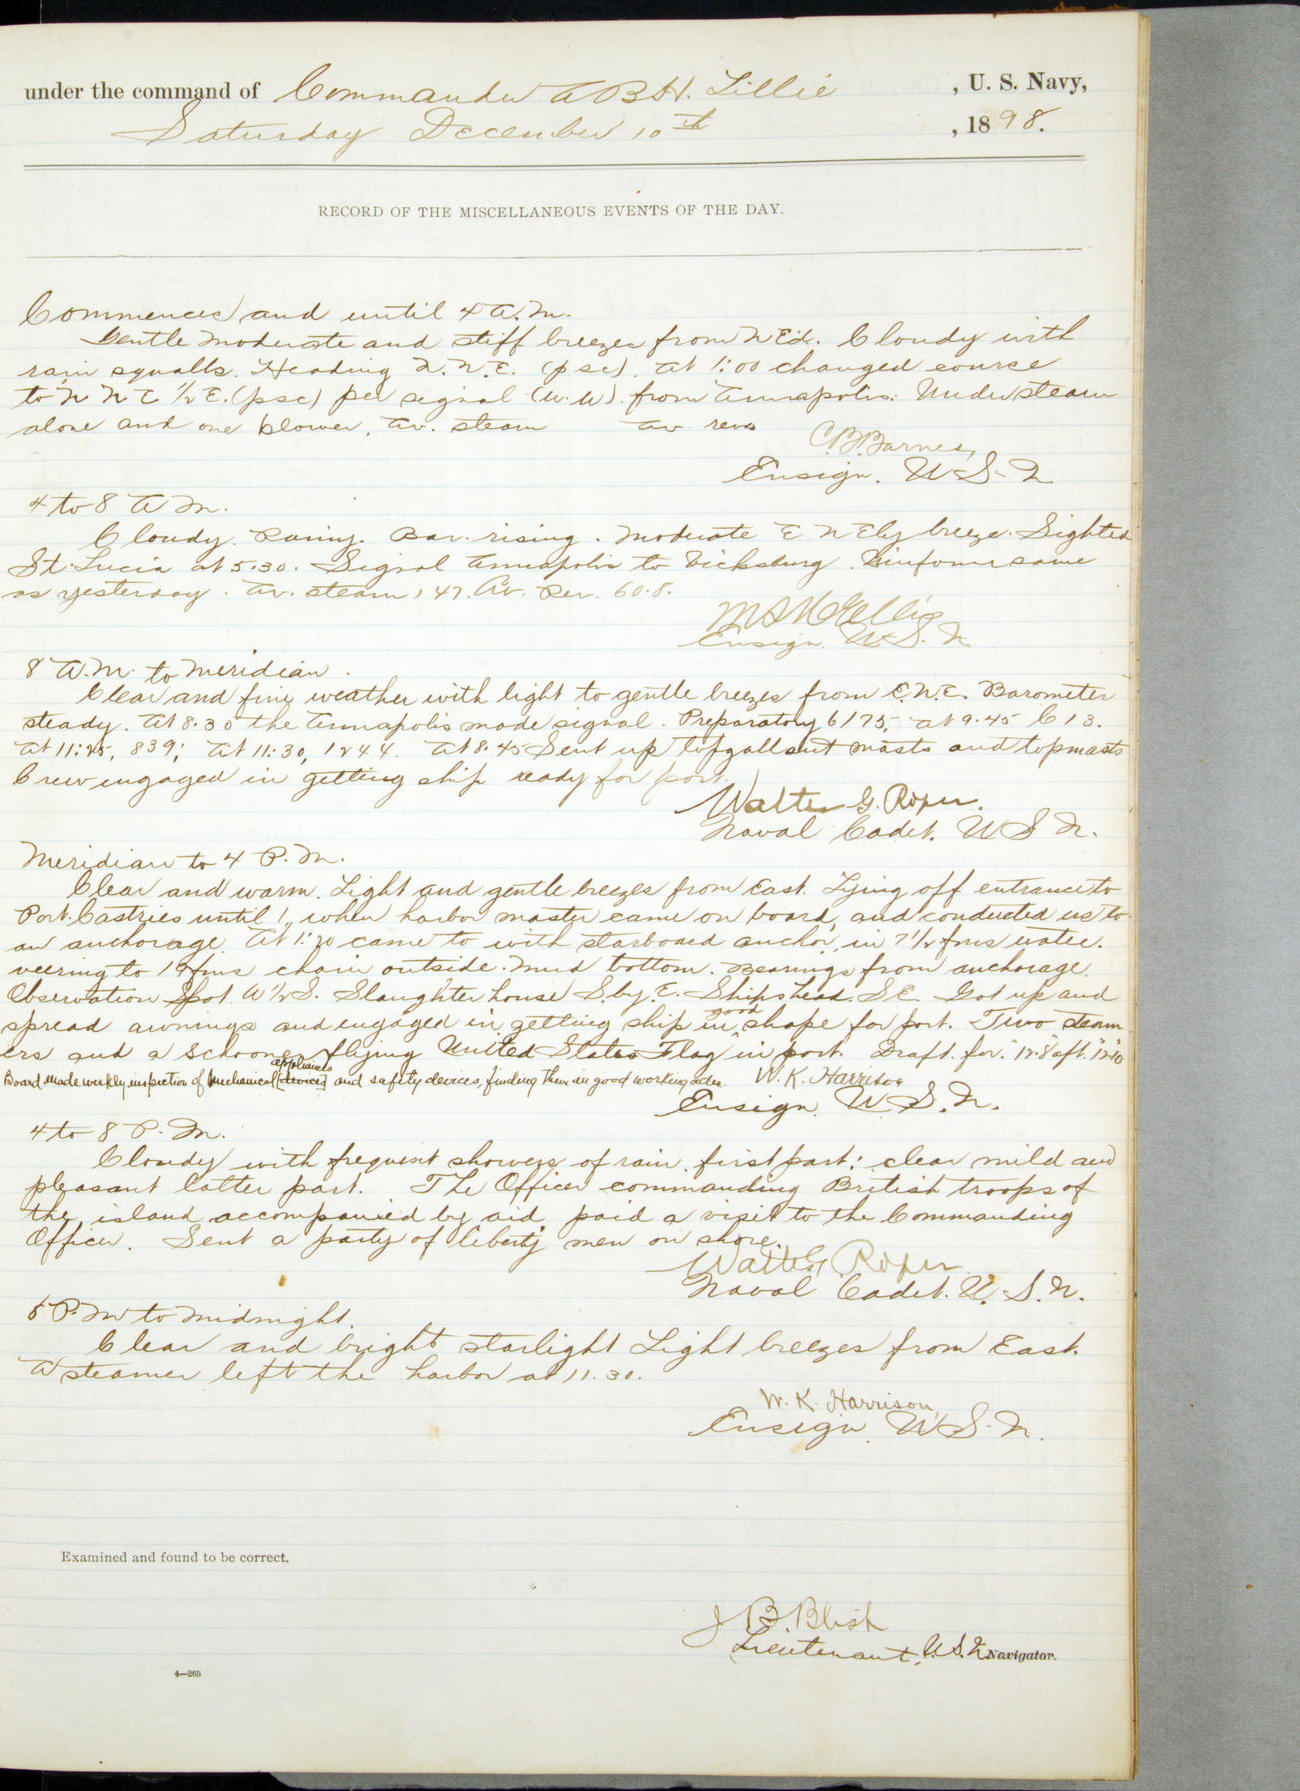 under the command of Commander A B H. Lillie, U. S. Navy,
Saturday December 10th, 1898.
RECORD OF THE MISCELLANEOUS EVENTS OF THE DAY.
Commences and until 4 A.M.
Gentle moderate and stiff breezes from N Ed. Cloudy with
rain squalls. Heading N.N.E. (psc). At 1:00 changed course
to N N E 1/2 E. (psc) per signal (W.W) from Annapolis. Under steam
alone and one blower. Av. steam av revs
C.B. Barnes,
Ensign. U.S.N
4 to 8 A M.
Cloudy. Rainy. Bar. rising. Moderate E N Ely breeze. Sighted
St. Lucia at 5.30. Signal Annapolis to Vicksburg. Uniform same
as yesterday. Av. steam 147. Av. Rev. 60.8.
Ensign U.S.N
8 A.M. to Meridian.
Clear and fine weather with light to gentle breezes from E.N.E. Barometer
steady. At 8.30 the Annapolis made signal. Preparatory 6175, at 9.45 C 13.
At 11:25, 839; At 11:30, 1244. At 8.45 Sent up topgallant masts and topmasts
Crew engaged in getting ship ready for port.
Walter G. Roper.
Naval Cadet. U S N.
Meridian to 4 P.M.
Clear and warm. Light and gentle breezes from East. Lying off entrance to
Port Castries until 1, when harbor master came on board, and conducted us to
an anchorage. At 1:20 came to with starboard anchor, in 7 1/2 fms water.
veering to 15 fms chain outside. Mud bottom. Bearings from anchorage.
Observation Spot W 1/2 S. Slaughter house S. by E. Ships head. S E. Got up and
spread awnings and engaged in getting ship in good shape for port. Two steam
ers and a schooner flying United States Flag in port. Draft. for. 12'8" aft. 12'10"
Board made weekly inspection of Mechanical [devices] appliances and safety devices, finding them in good working order.
W. K. Harrison
Ensign. U.S.N.
4 to 8 P.M.
Cloudy with frequent showers of rain first part; clear mild and
pleasant latter part. The Officer commanding British troops of
the island accompanied by aid, paid a visit to the Commanding
Officer. Sent a party of liberty men on shore.
Walter G Roper
Naval Cadet. U.S.N.
8 P.M to Midnight.
Clear and bright starlight Light breezes from East.
A steamer left the harbor at 11.30.
W. K. Harrison,
Ensign. U.S.N.
Examined and found to be correct.
J B. Blish
Lieutenant, U.S.N. Navigator.
4—265